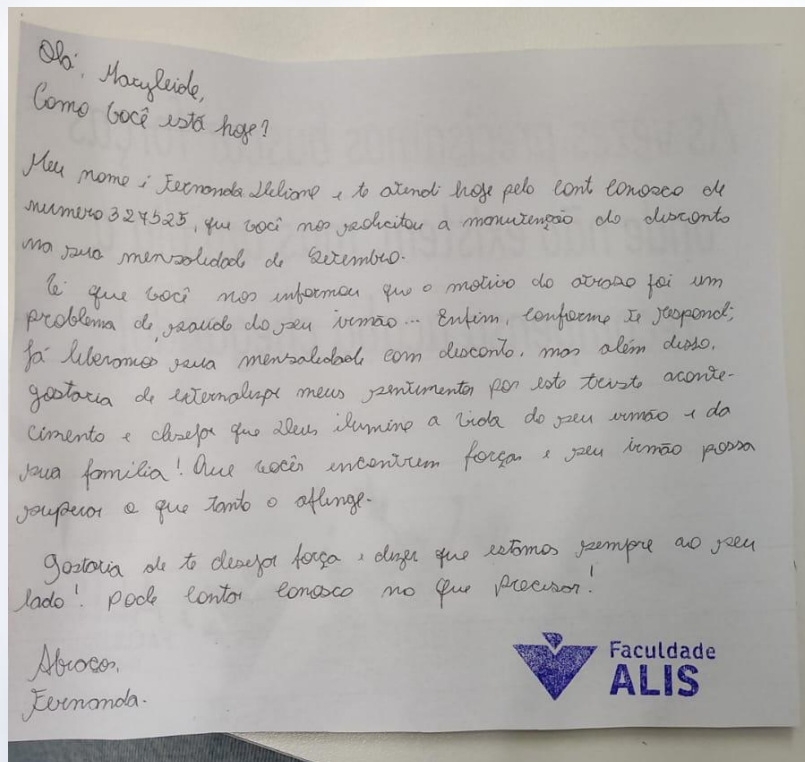 Olá, Maryleide,
Como você está hoje?
Meu nome é Fernanda Meliane e te atendi hoje pelo cont conosco de
numero 327525, que você nos solicitou a manutenção do desconto
na sua mensalidade de Setembro.
Li que você nos informou que o motivo do atraso foi um
problema de saúde do seu irmão... Enfim, conforme te respondi,
já liberamos sua mensalidade com desconto, mas além disso,
gostaria de externalizar meus sentimentos por este triste aconte-
cimento e desejar que Deus ilumine a vida do seu irmão e da
sua família! Que vocês encontrem forças e seu irmão possa
superar o que tanto o aflinge.
Gostaria de te desejar força e dizer que estamos sempre ao seu
lado! Pode contar conosco no que precisar!
Abraços,
Fernanda.
Faculdade
ALIS